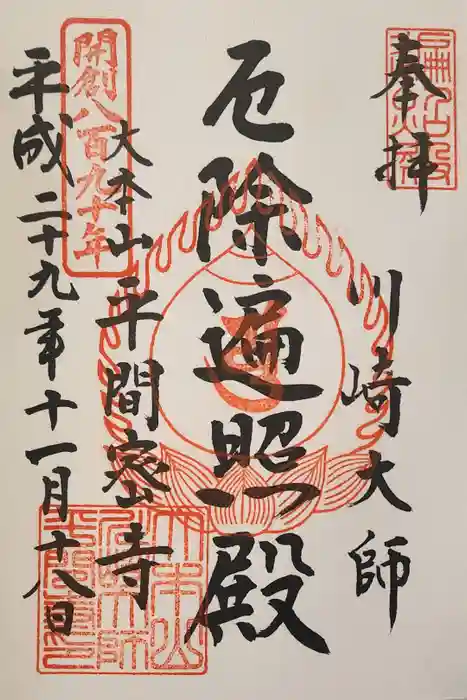 奉拝
川崎大師
厄除遍照殿
大本山 平間密寺
開創八百九十年
平成二十九年十一月十八日